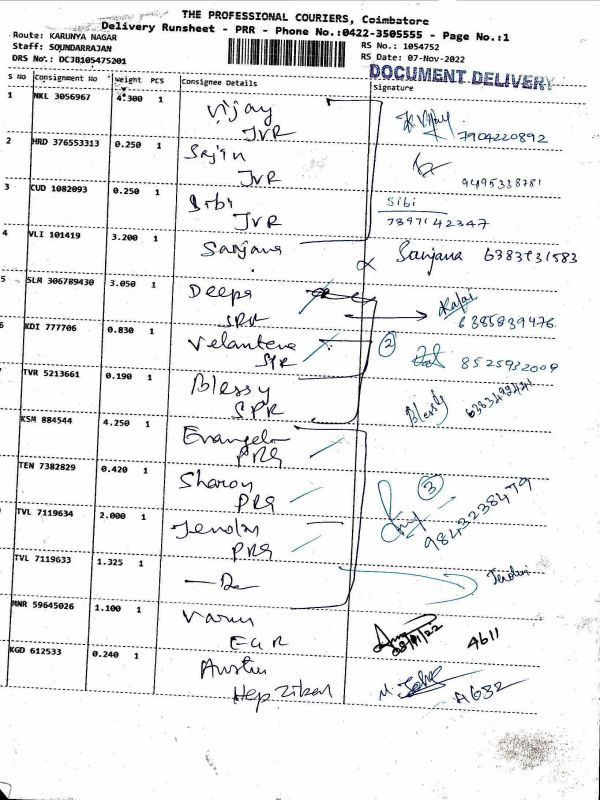 THE PROFESSIONAL COURIERS, Coimbatore
Delivery Runsheet - PRR - Phone No.:0422-3505555 - Page No.:1
Route: KARUNYA NAGAR RS No.: 1054752
Staff: SOUNDARRAJAN RS Date: 07-Nov-2022
DRS No.: DCJB105475201 DOCUMENT DELIVERY
S No Consignment No Weight PCS Consignee Details Signature
1 NKL 3056967 4.300 1 Vijay
JVR 7904220892
2 HRD 376553313 0.250 1 Sajin
JVR 9495338781
3 CUD 1082093 0.250 1 Sibi Sibi
JVR 7397142347
4 VLI 101419 3.200 1 Sanjana Sanjana 6383131583
5 SLM 306789430 3.050 1 Deepa
SRR 6385839476
6 KDI 777706 0.830 1 Velantena 2
SPR 8525932009
7 TVR 5213661 0.190 1 Blessy Blessy
SPR
KSM 884544 4.250 1 Evangelo
PRG
TEN 7382829 0.420 1 Sharon 3
PRG 9843238479
TVL 7119634 2.000 1 Jendin
PRG
TVL 7119633 1.325 1
MNR 59645026 1.100 1 Varun
EGR 4611
KGD 612533 0.240 1 Austin
Hepziban A632